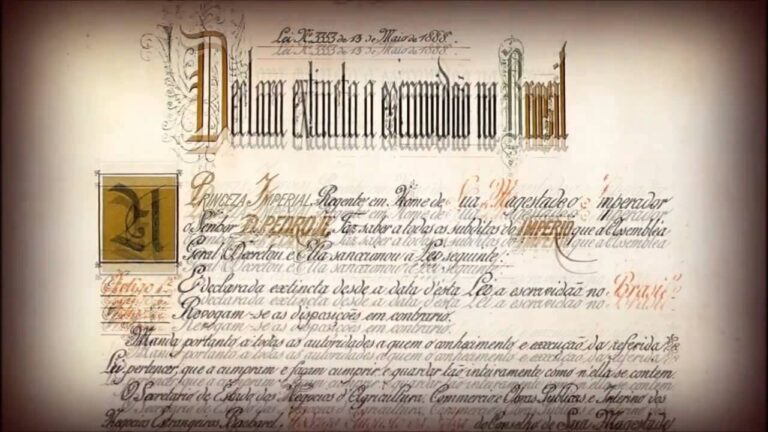 Lei Nº 3353 de 13 de Maio de 1888.
Declara extincta a escravidão no Brasil
A PRINCEZA IMPERIAL, Regente em Nome de Sua Magestade o Imperador
o Senhor D. PEDRO II, Faz saber a todos os subditos do IMPERIO que a Assembléa
Geral Decretou e Ella sanccionou a Lei seguinte:
Artigo 1º É declarada extincta desde a data d'esta Lei a escravidão no Brasil.
Revogam-se as disposições em contrario.
Manda portanto a todas as autoridades a quem o conhecimento e execução da referida
Lei pertencer, que a cumpram e façam cumprir e guardar tão inteiramente como n'ella se contem.
O Secretario de Estado dos Negocios d'Agricultura, Commercio e Obras Publicas e Interino dos
Negocios Estrangeiros, Bacharel do Conselho de Sua Magestade